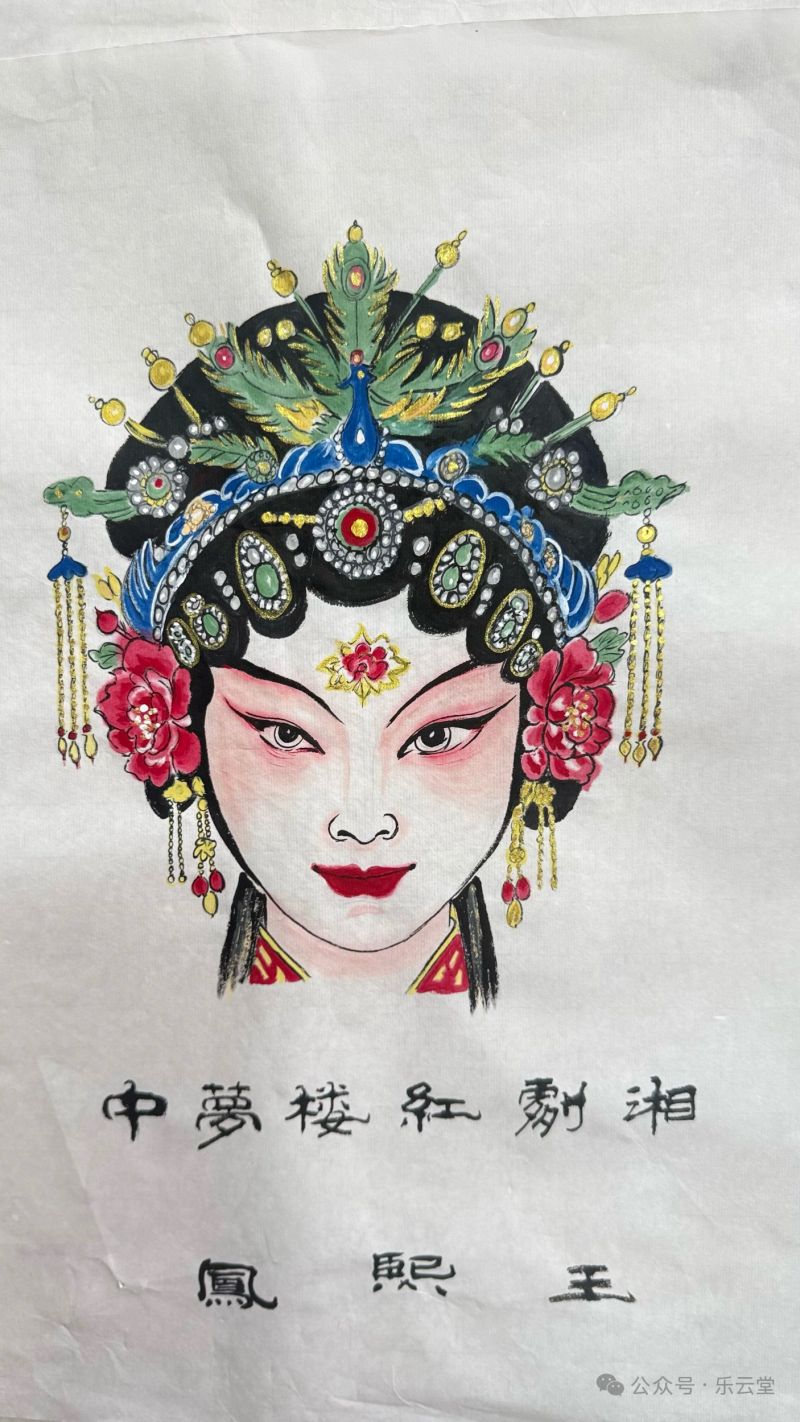 湘劇紅楼夢中
王熙鳳
公众号·乐云堂